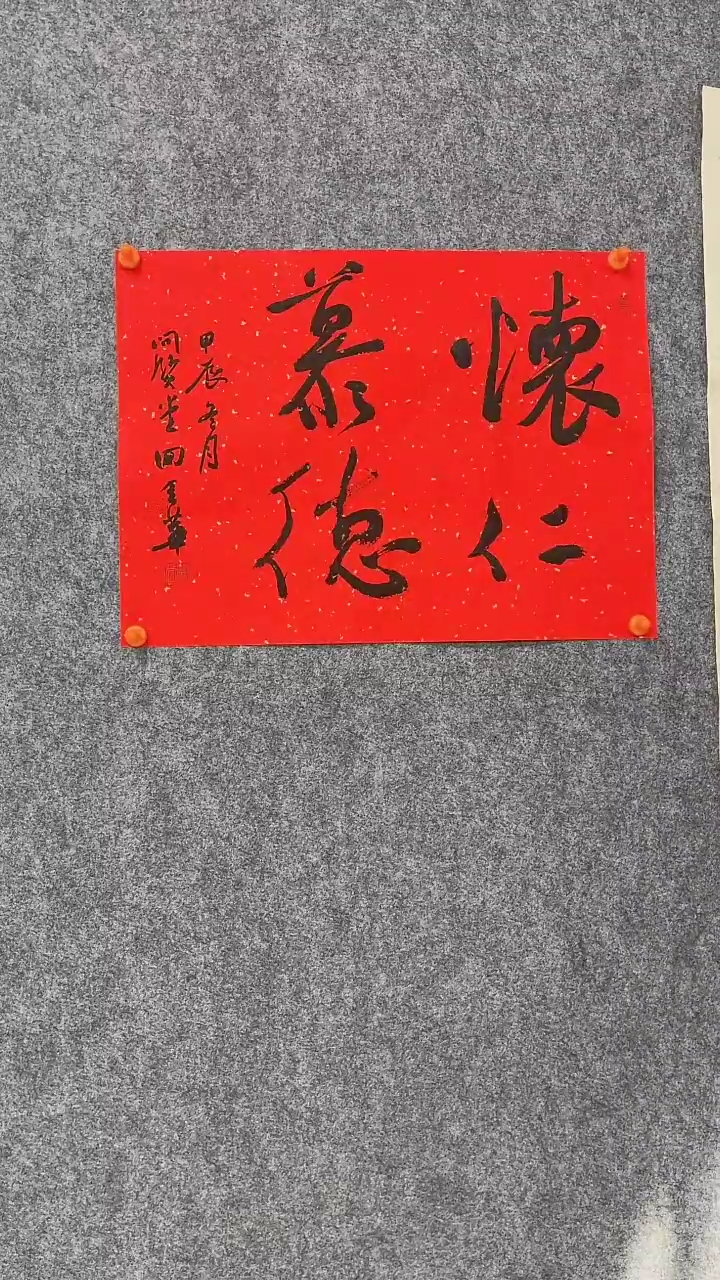 懷仁
慕德
甲辰冬月
問賢堂田玉華